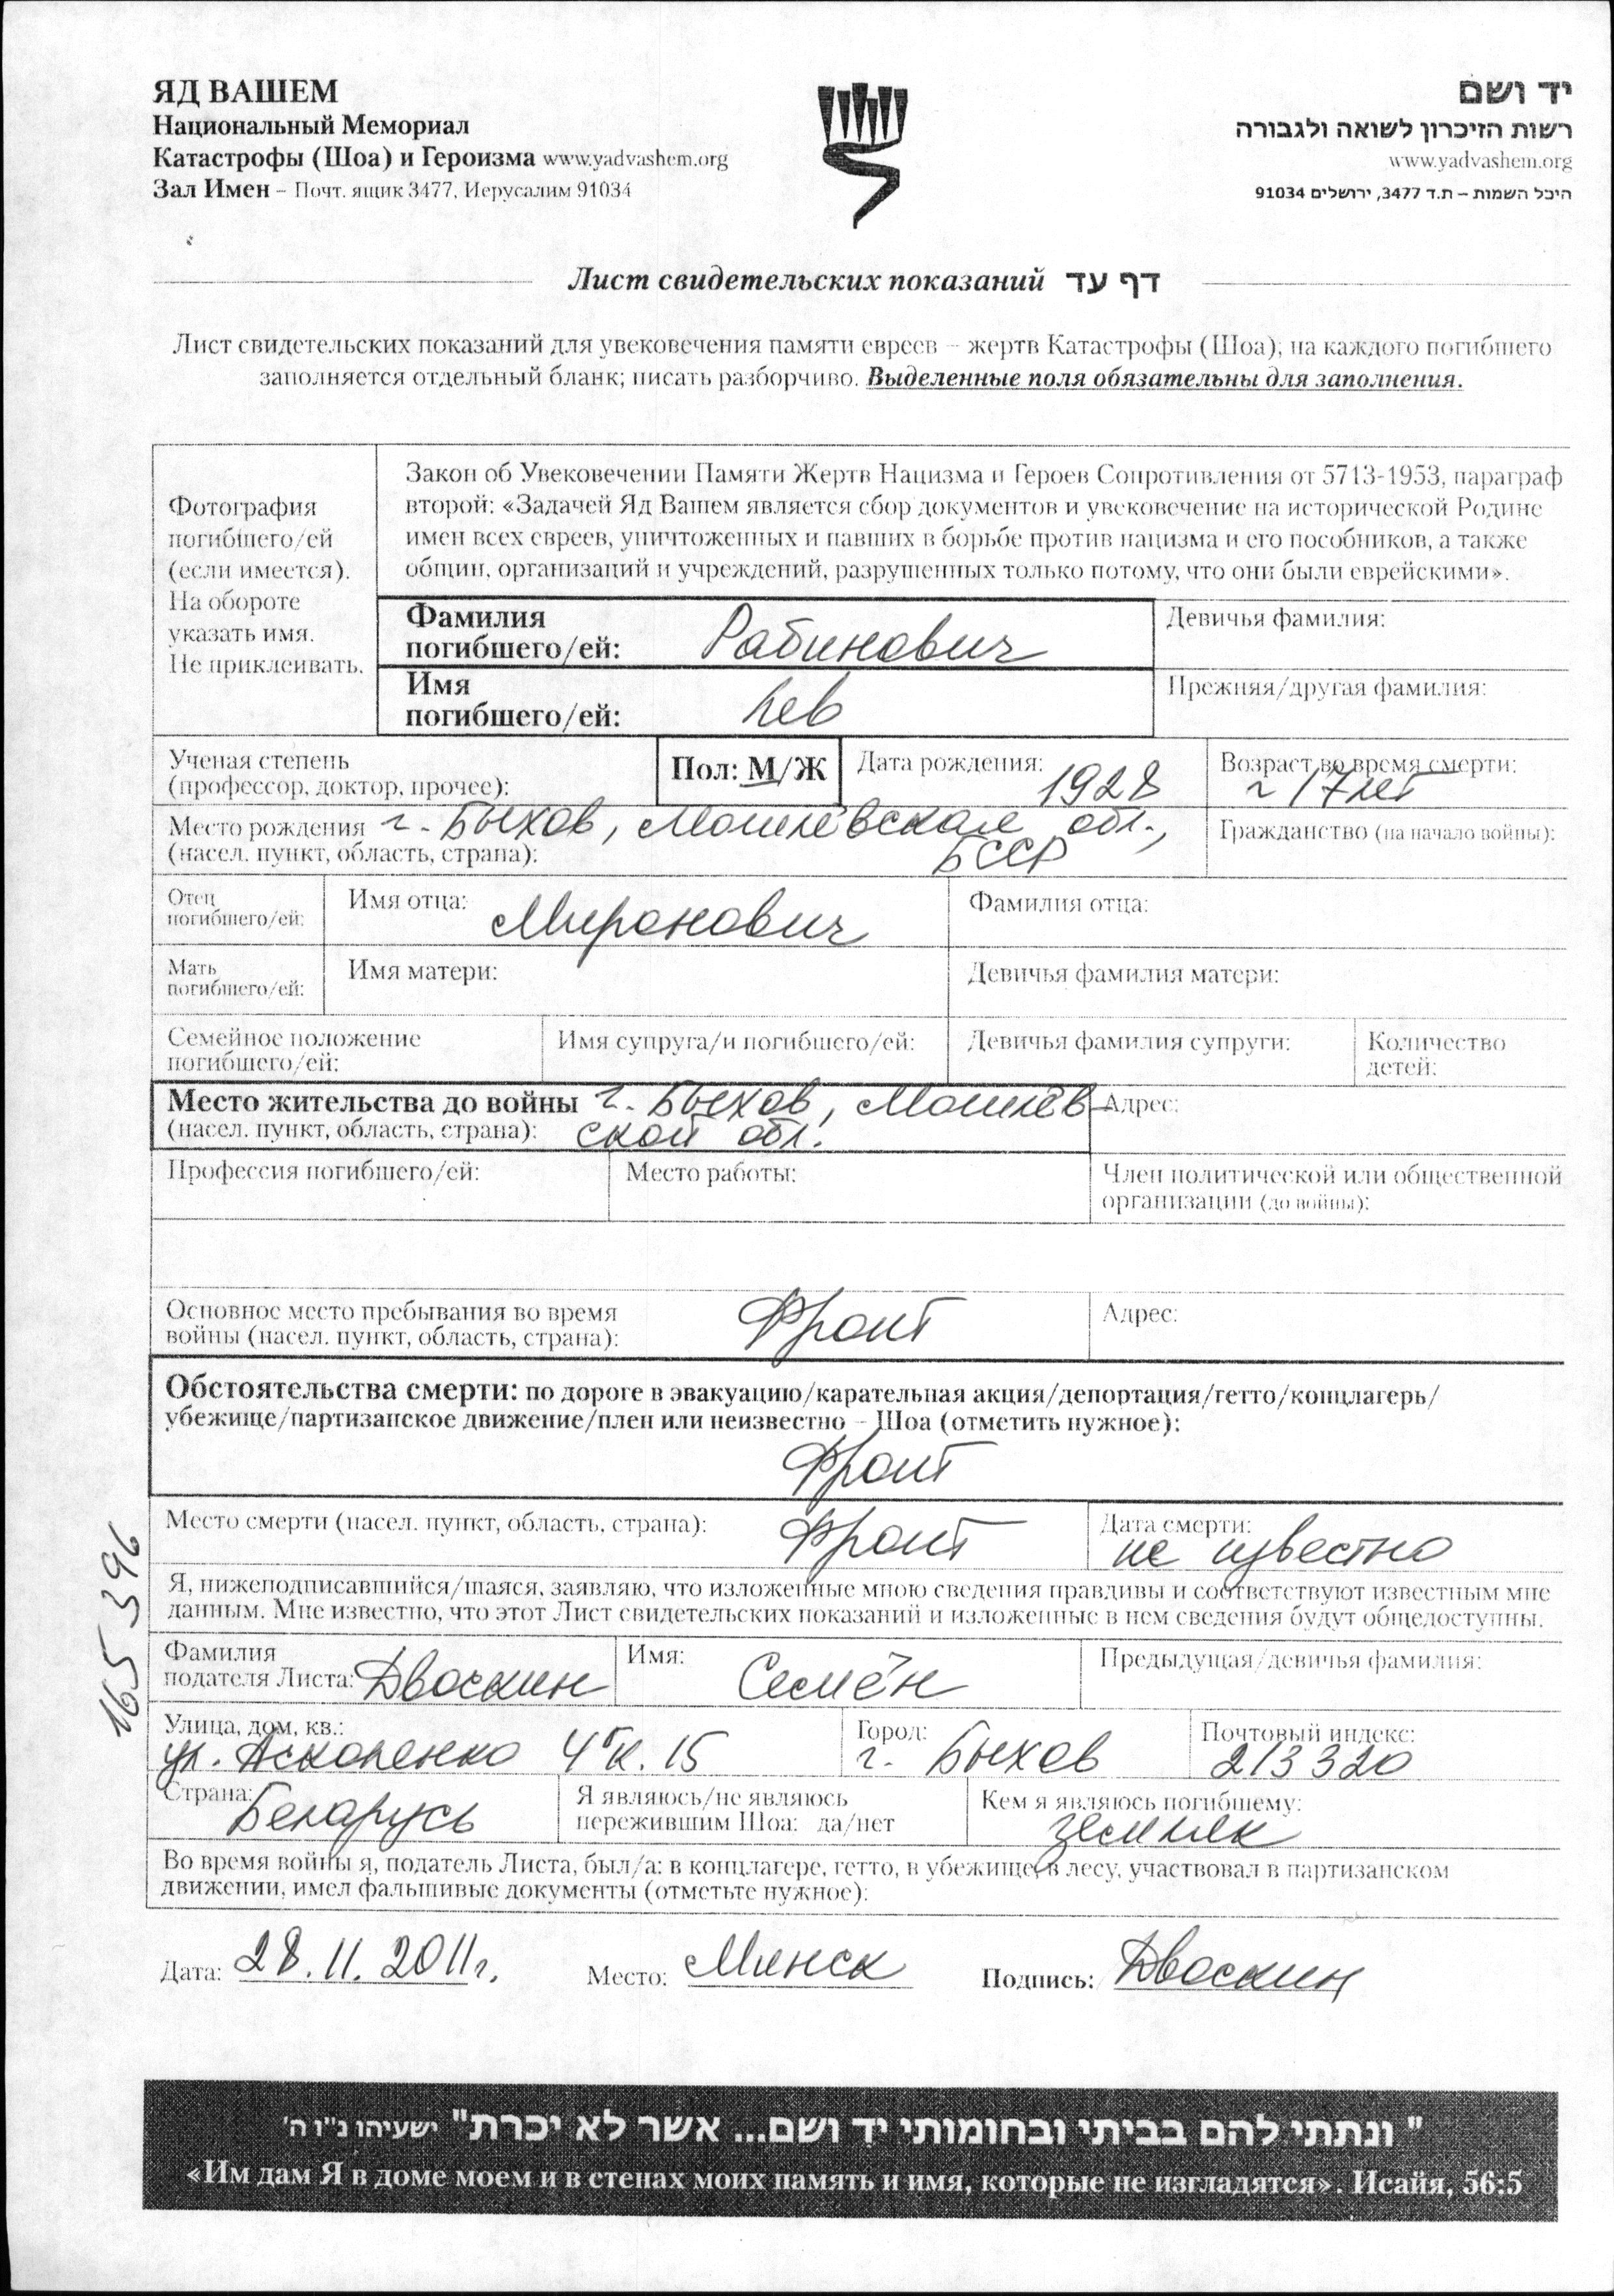 ЯД ВАШЕМ
Национальный Мемориал
Катастрофы (Шоа) и Героизма www.yadvashem.org
Зал Имен – Почт. ящик 3477, Иерусалим 91034
יד ושם
רשות הזיכרון לשואה ולגבורה
www.yadvashem.org
היכל השמות – ת.ד 3477, ירושלים 91034
Лист свидетельских показаний דף עד
Лист свидетельских показаний для увековечения памяти евреев – жертв Катастрофы (Шоа); на каждого погибшего
заполняется отдельный бланк; писать разборчиво. Выделенные поля обязательны для заполнения.
Фотография
погибшего/ей
(если имеется).
На обороте
указать имя.
Не приклеивать.
Закон об Увековечении Памяти Жертв Нацизма и Героев Сопротивления от 5713-1953, параграф
второй: «Задачей Яд Вашем является сбор документов и увековечение на исторической Родине
имен всех евреев, уничтоженных и павших в борьбе против нацизма и его пособников, а также
общин, организаций и учреждений, разрушенных только потому, что они были еврейскими».
Фамилия
погибшего/ей: Рабинович
Девичья фамилия:
Имя
погибшего/ей: Лев
Прежняя/другая фамилия:
Ученая степень
(профессор, доктор, прочее):
Пол: М/Ж
Дата рождения: 1928
Возраст во время смерти:
~ 17 лет
Место рождения г. Быхов, Могилёвская обл.,
(насел. пункт, область, страна): БССР
Гражданство (на начало войны):
Отец
погибшего/ей:
Имя отца: Миронович
Фамилия отца:
Мать
погибшего/ей:
Имя матери:
Девичья фамилия матери:
Семейное положение
погибшего/ей:
Имя супруга/и погибшего/ей:
Девичья фамилия супруги:
Количество
детей:
Место жительства до войны г. Быхов, Могилёв-
(насел. пункт, область, страна): ской обл.
Адрес:
Профессия погибшего/ей:
Место работы:
Член политической или общественной
организации (до войны):
Основное место пребывания во время
войны (насел. пункт, область, страна): Фронт
Адрес:
Обстоятельства смерти: по дороге в эвакуацию/карательная акция/депортация/гетто/концлагерь/
убежище/партизанское движение/плен или неизвестно – Шоа (отметить нужное):
Фронт
Место смерти (насел. пункт, область, страна): Фронт
Дата смерти:
не известно
Я, нижеподписавшийся/шаяся, заявляю, что изложенные мною сведения правдивы и соответствуют известным мне
данным. Мне известно, что этот Лист свидетельских показаний и изложенные в нем сведения будут общедоступны.
Фамилия
подателя Листа: Двоскин
Имя: Семён
Предыдущая/девичья фамилия:
Улица, дом, кв.:
Город:
г. Быхов
Почтовый индекс:
213320
Страна:
Беларусь
Я являюсь/не являюсь
пережившим Шоа: да/нет
Кем я являюсь погибшему:
земляк
Во время войны я, податель Листа, был/а: в концлагере, гетто, в убежище, в лесу, участвовал в партизанском
движении, имел фальшивые документы (отметьте нужное):
Дата: 28.11.2011г.
Место: Минск
Подпись: Двоскин
165396
"ונתתי להם בביתי ובחומותי יד ושם... אשר לא יכרת" ישעיהו נ"ו ה'
«Им дам Я в доме моем и в стенах моих память и имя, которые не изгладятся». Исайя, 56:5